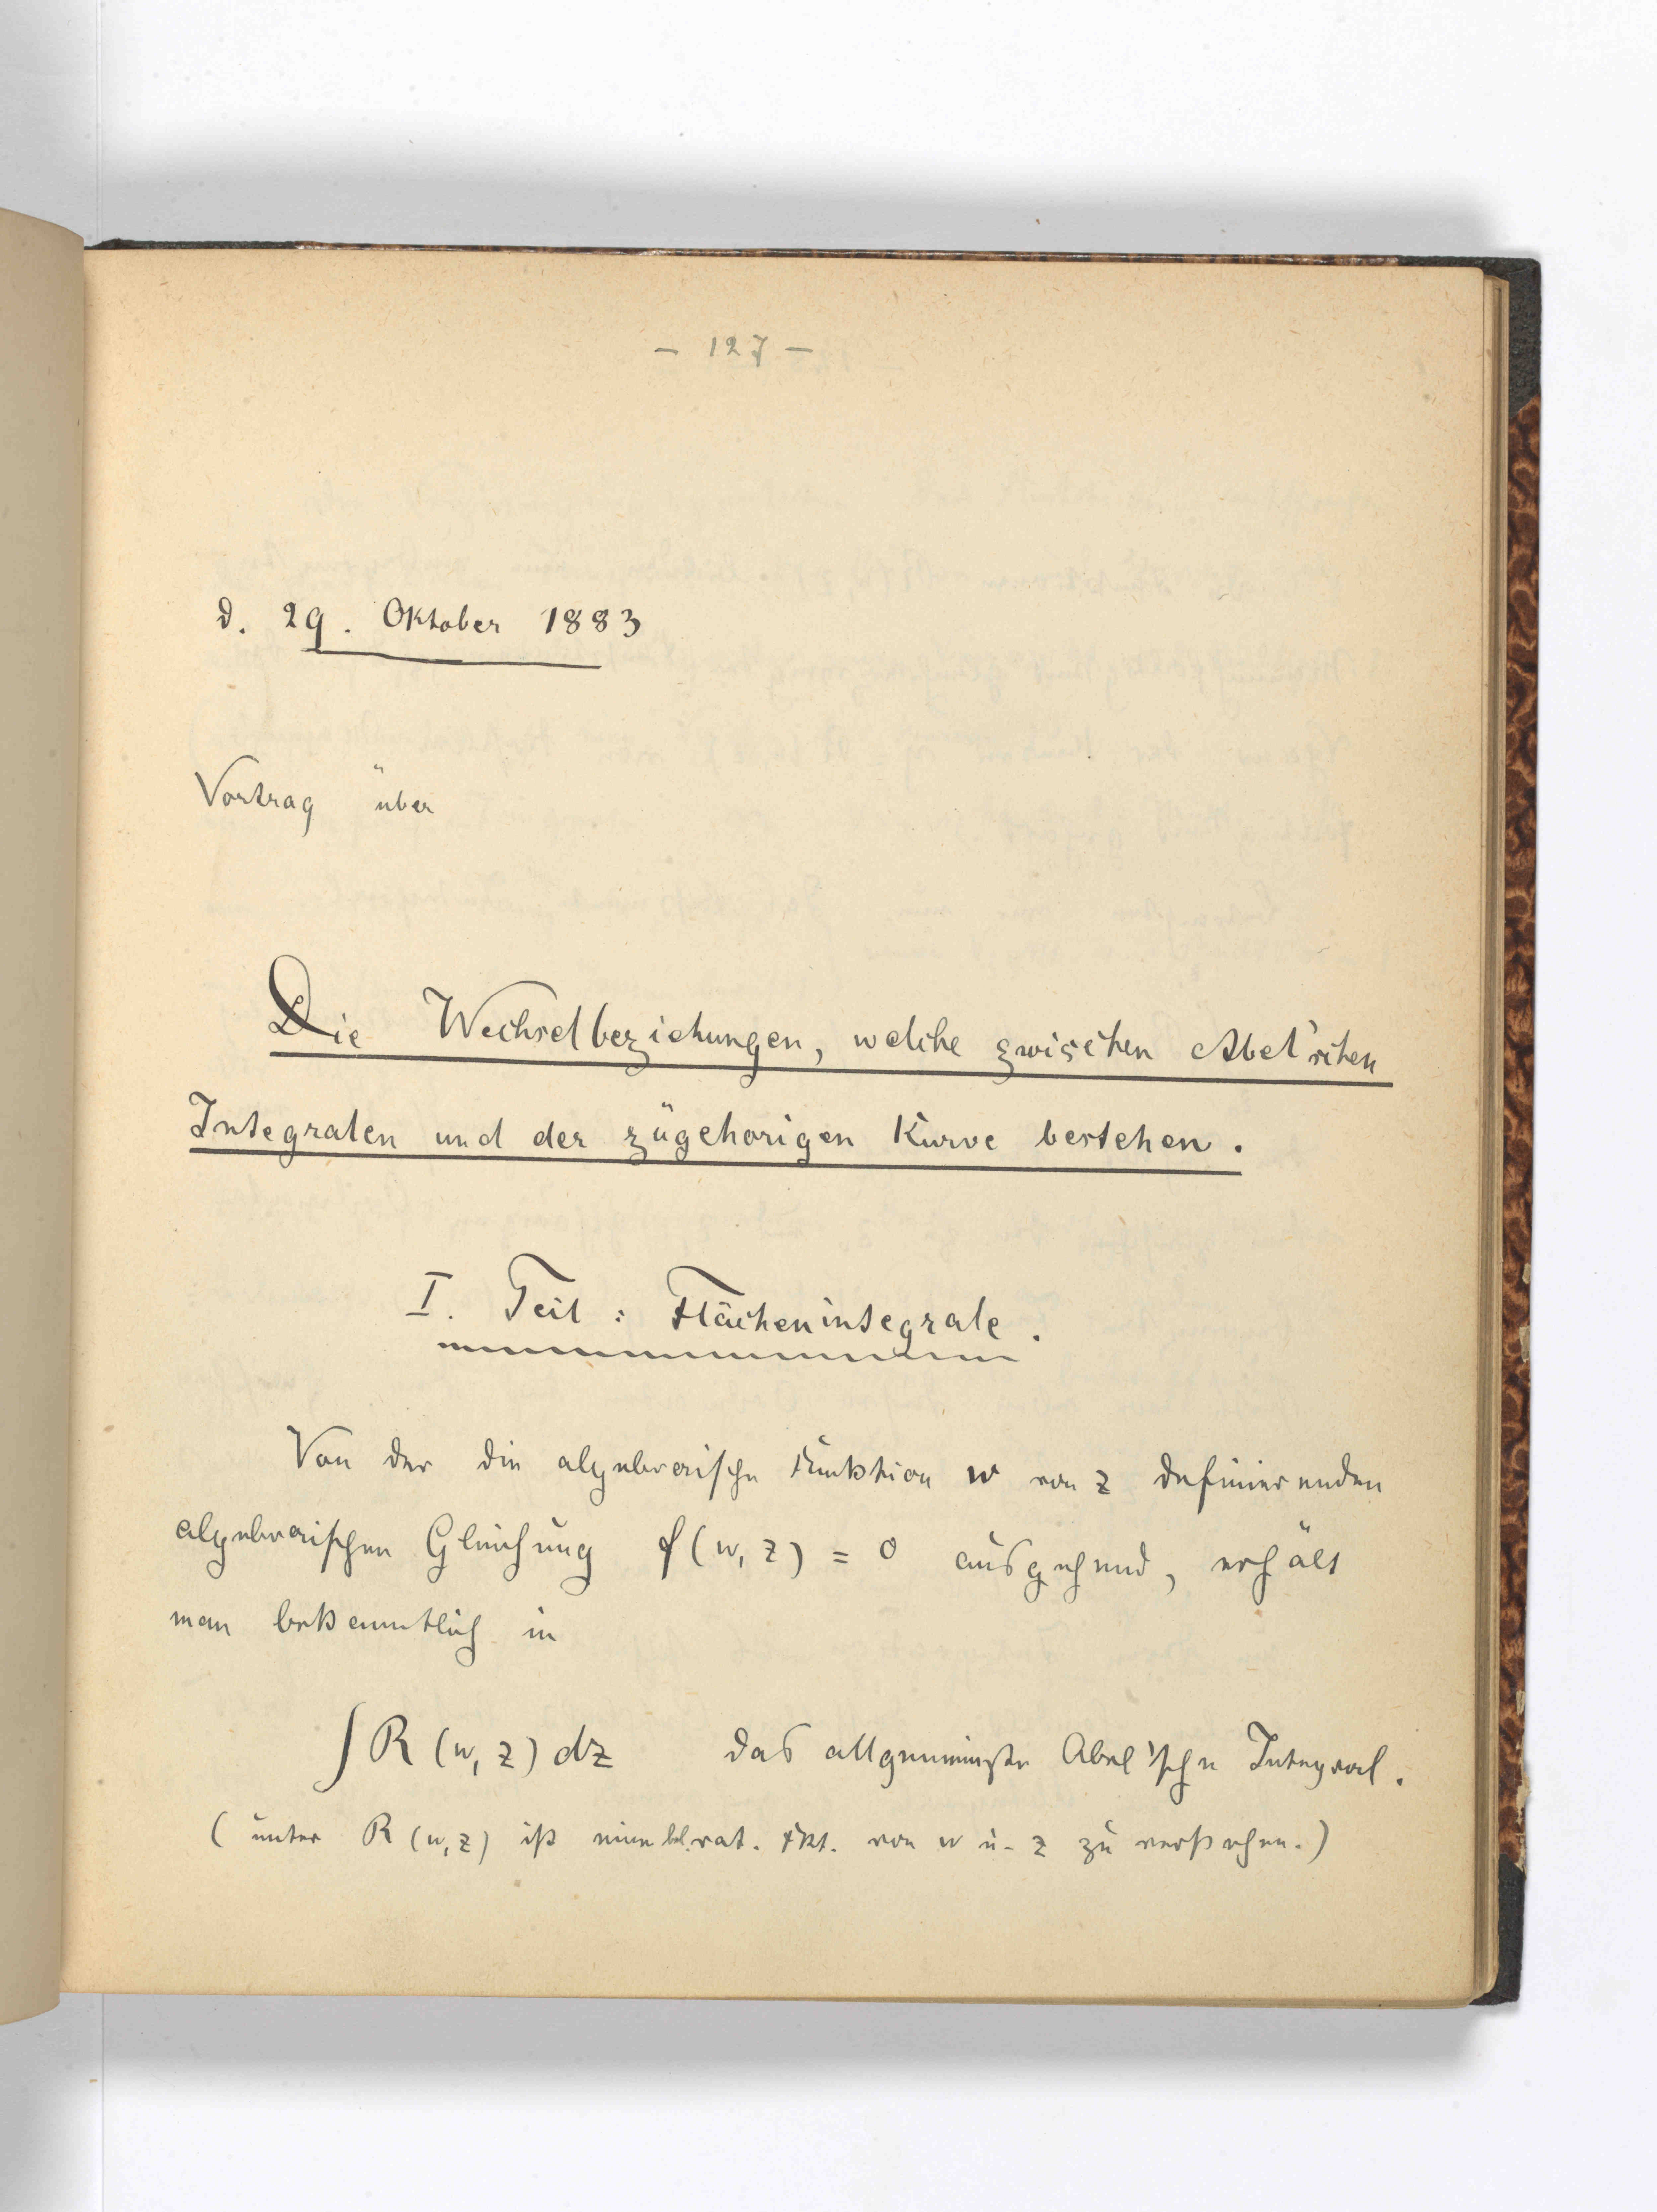 – 127 –
d. 29. Oktober 1883
Vortrag über
Die Wechselbeziehungen, welche zwischen Abel'schen
Integralen und der zugehörigen Kurve bestehen.
I. Teil: Flächenintegrale.
Von der die algebraische Funktion w von z definierenden
algebraischen Gleichung f(w, z) = 0 ausgehend, erhält
man bekanntlich in
∫ R (w, z) dz das allgemeinste Abel'sche Integral.
(unter R (w, z) ist eine bel. rat. Fkt. von w u. z zu verstehen.)